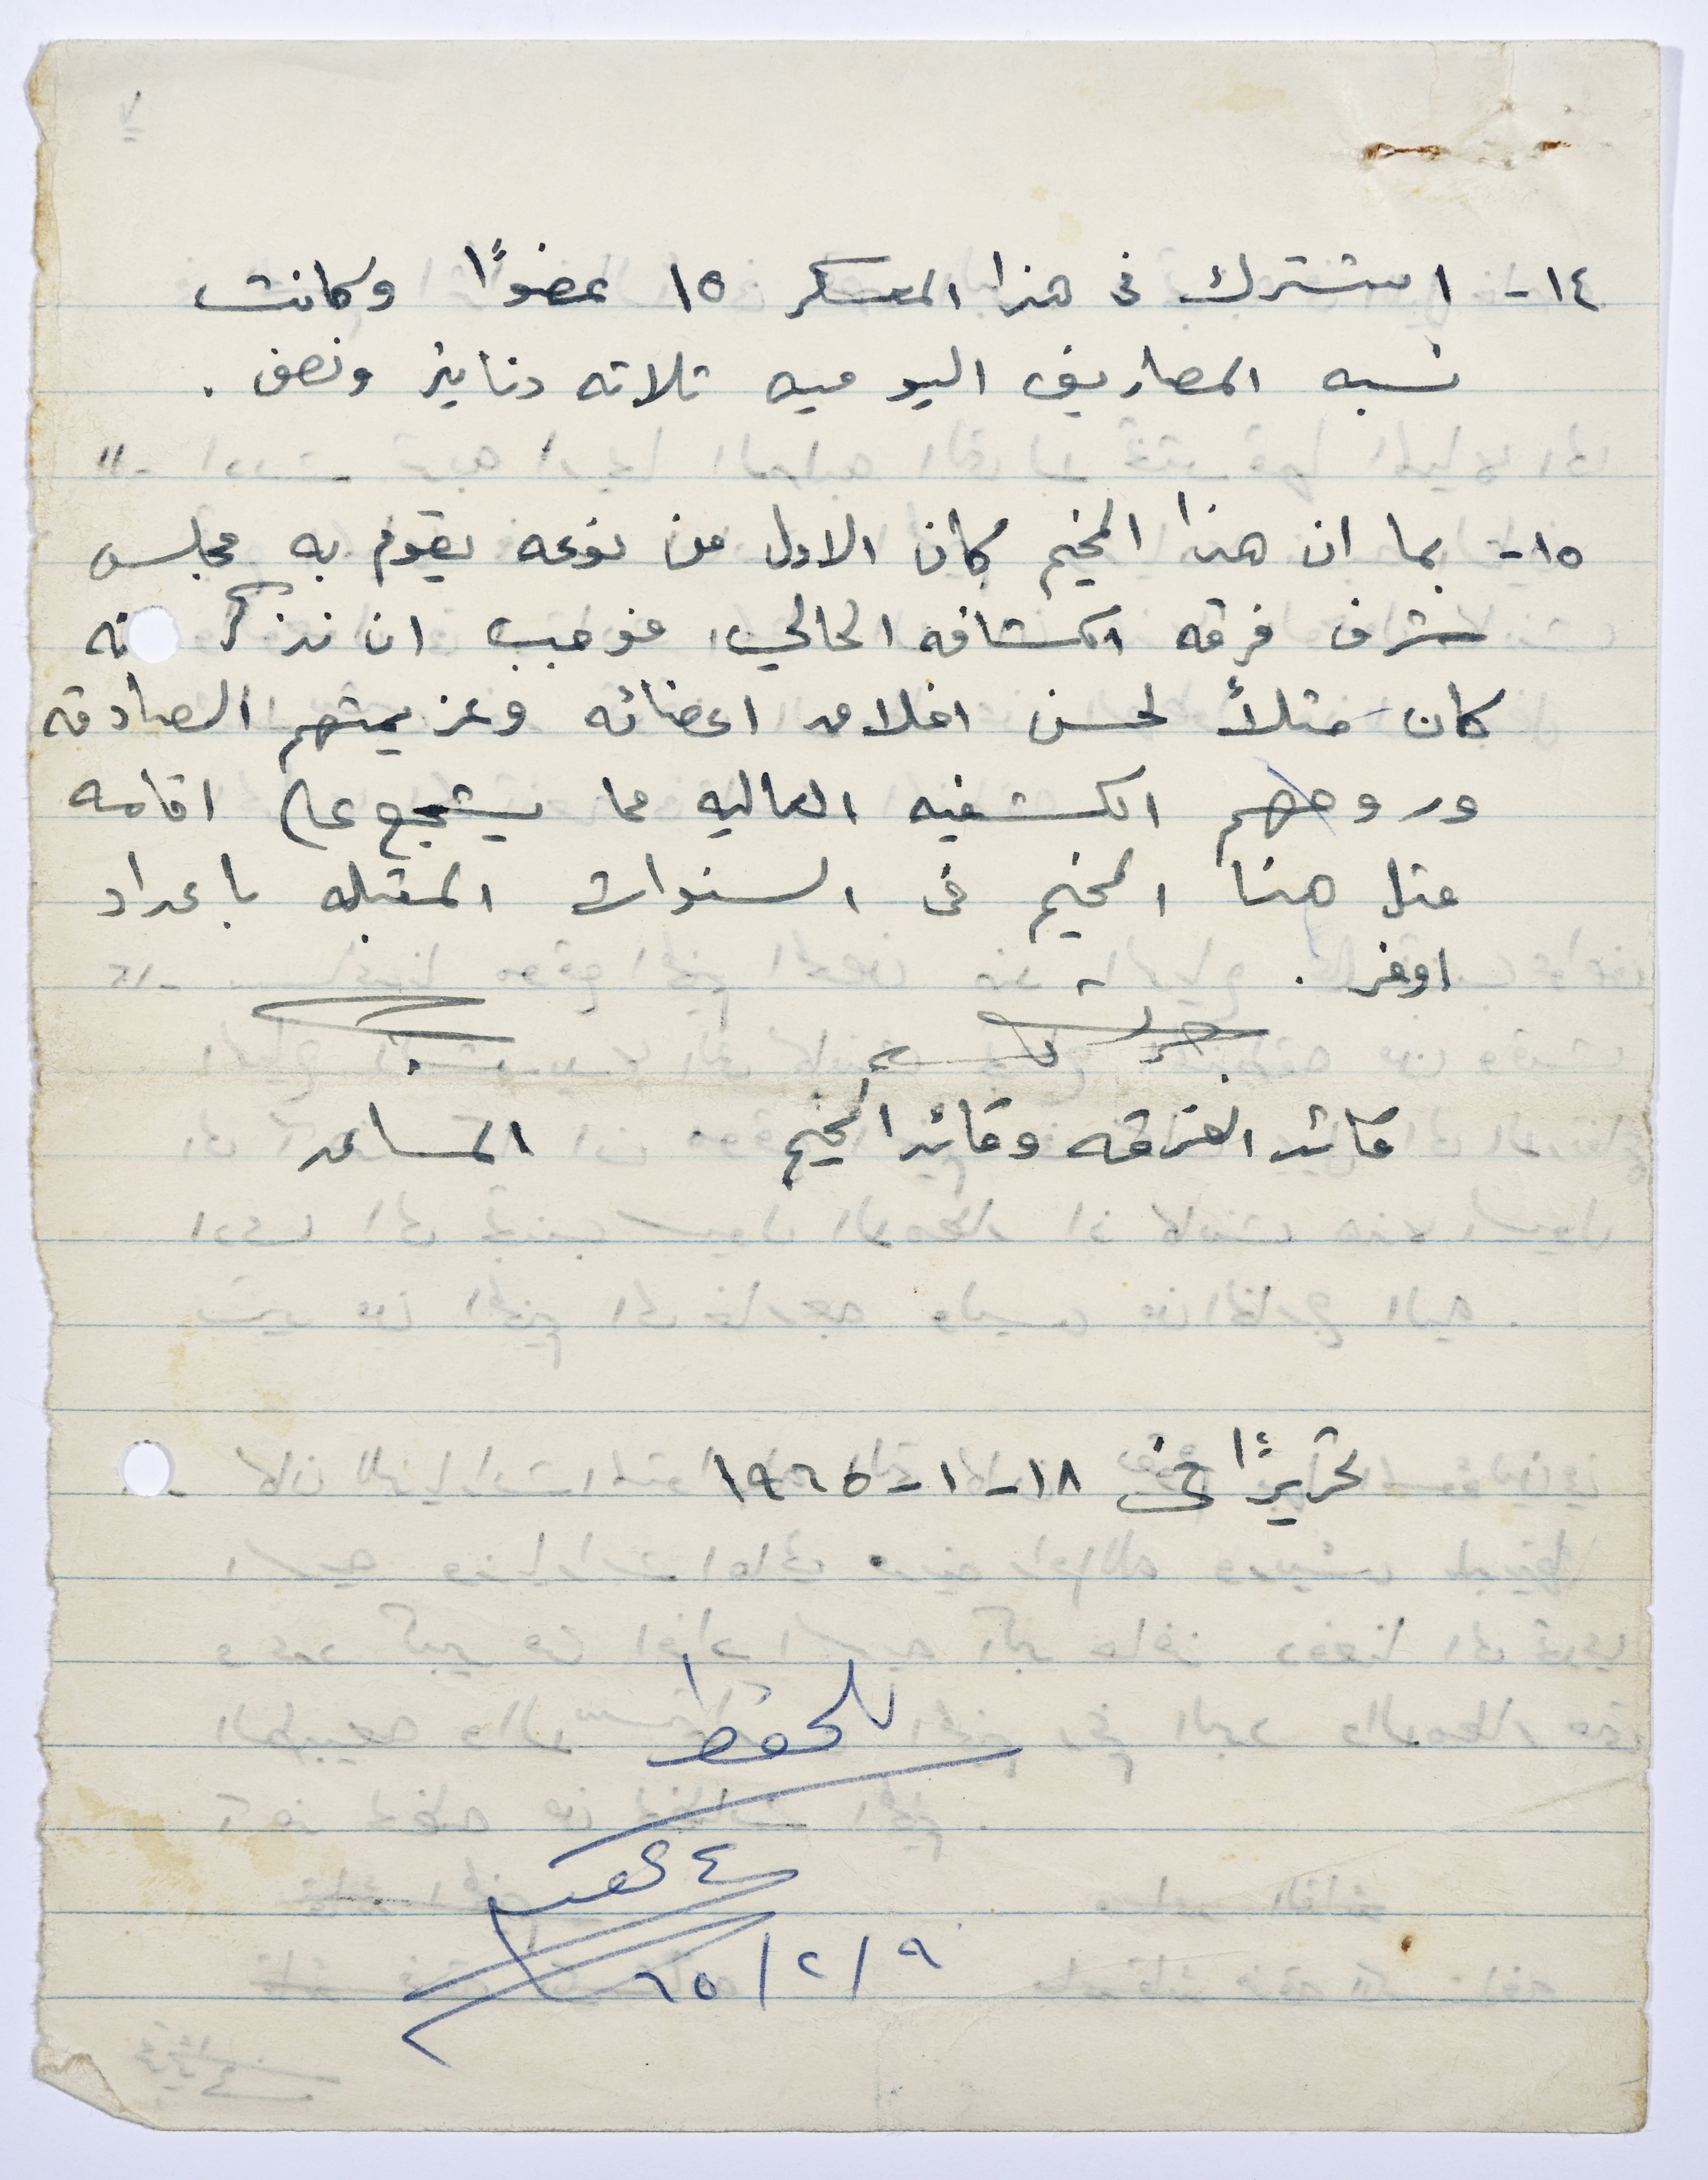 ١٤- اشترك فى هذا المعسكر ١٥ عضوًا وكانت
نسبه المصاريف اليوميه ثلاثه دنانير ونصف .
١٥- بما ان هذا المخيم كان الاول من نوعه يقوم به مجلس
شرف فرقه الكشافه الحالي، فوجب ان نذكر انه
كان مثلاً لحسن اخلاق اعضائه وعزيمتهم الصادقه
وروحهم الكشفيه العاليه مما يشجع على اقامه
مثل هذا المخيم فى السنوات المقبله باعداد
اوفر .
قائد الفرقه وقائد المخيم المساعد
تحريرًا فى ١٨-١-١٩٦٥
للحفظ
٩/٢/٦٥